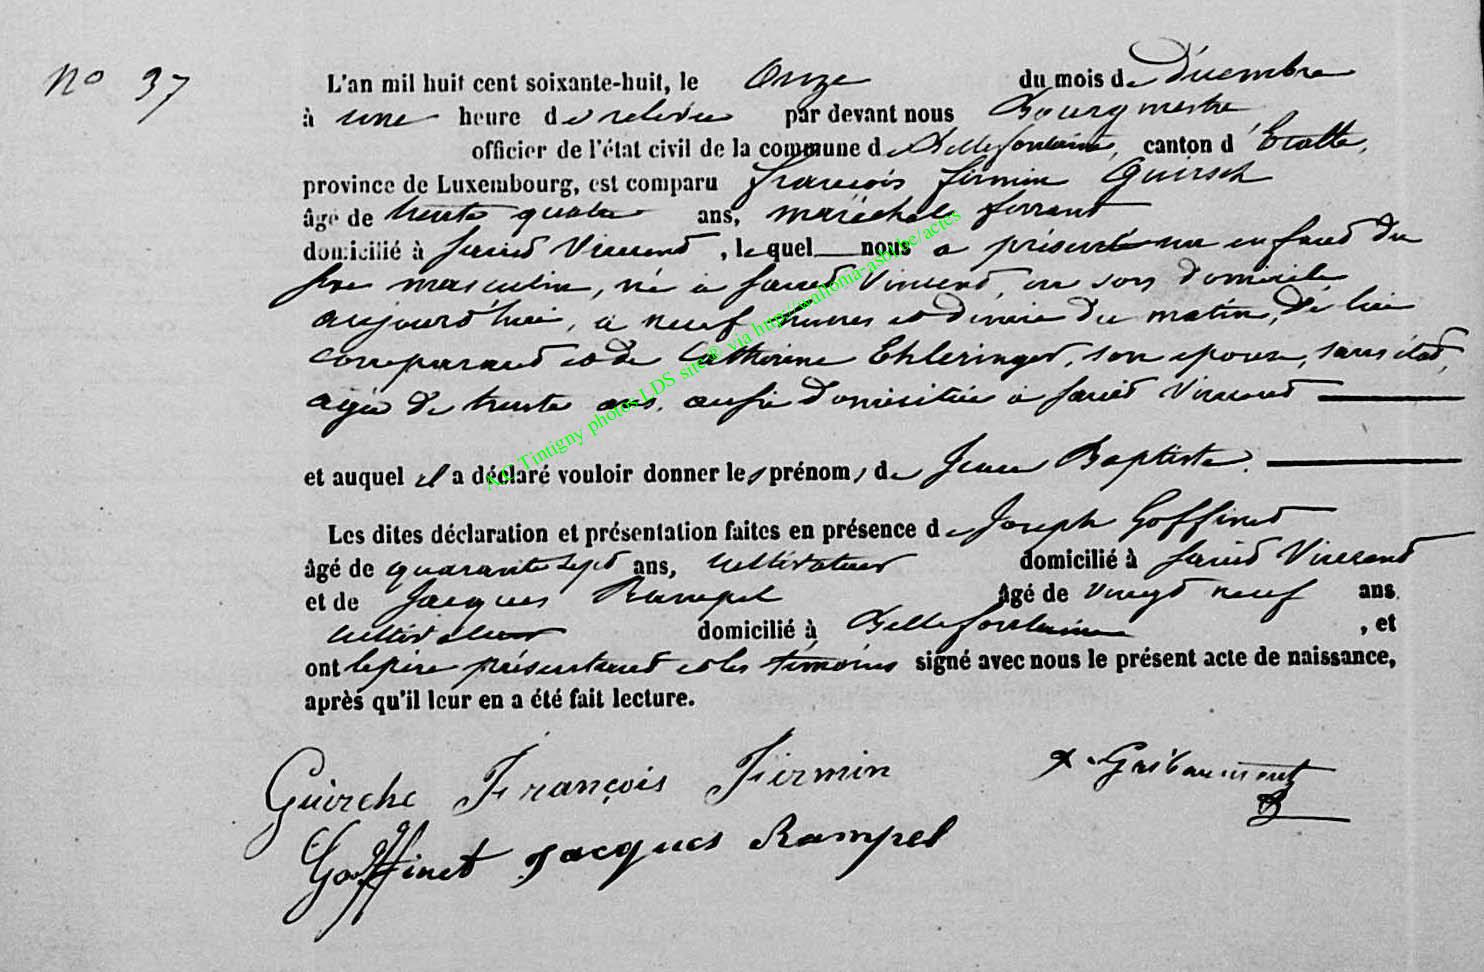 No 37
L'an mil huit cent soixante-huit, le Onze du mois de Décembre
à une heure de relevée par devant nous Bourgmestre
officier de l'état civil de la commune de Bellefontaine, canton d'Etalle,
province de Luxembourg, est comparu françois firmin Guirsch
âgé de trente quatre ans, maréchal ferrant
domicilié à Saint Vincent, lequel nous a présenté un enfant du
sexe masculin, né à Saint Vincent, en son domicile
aujourd'hui, à neuf heures et demie du matin, de lui
comparant et de Catherine Ehleringer, son épouse, sans état,
agée de trente ans, aussi domiciliée à Saint Vincent
et auquel il a déclaré vouloir donner les prénoms de Jean Baptiste.
Les dites déclaration et présentation faites en présence de Joseph Goffinet
âgé de quarante sept ans, cultivateur domicilié à Saint Vincent
et de Jacques Rampel âgé de vingt neuf ans
cultivateur domicilié à Bellefontaine, et
ont le père présentant et les témoins signé avec nous le présent acte de naissance,
après qu'il leur en a été fait lecture.
Guirche François Firmin
Goffinet Jacques Rampel
AC Tintigny photos LDS site® via http://wallonia-asbl.be/actes